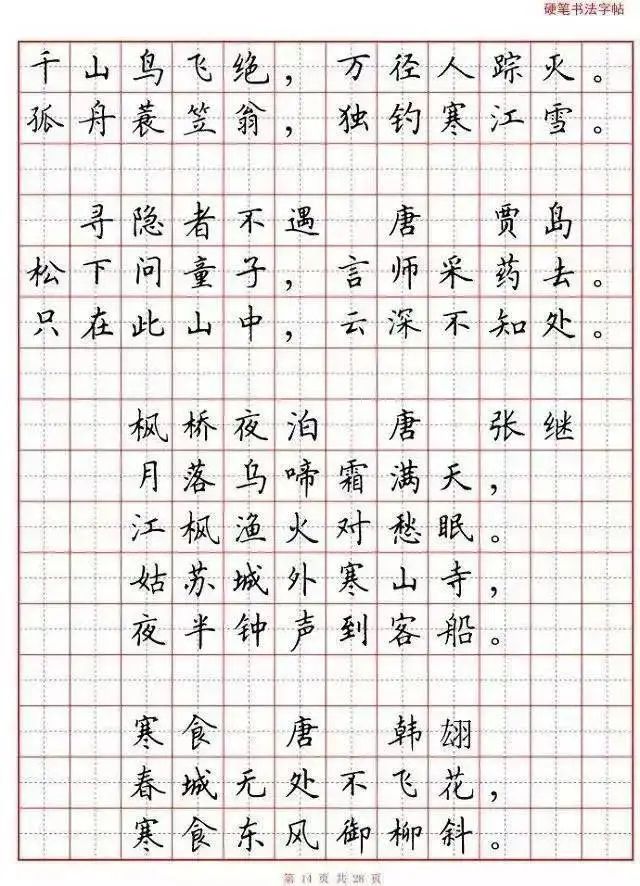 硬笔书法字帖
千山鸟飞绝，万径人踪灭。
孤舟蓑笠翁，独钓寒江雪。
寻隐者不遇 唐 贾岛
松下问童子，言师采药去。
只在此山中，云深不知处。
枫桥夜泊 唐 张继
月落乌啼霜满天，
江枫渔火对愁眠。
姑苏城外寒山寺，
夜半钟声到客船。
寒食 唐 韩翃
春城无处不飞花，
寒食东风御柳斜。
第 14 页 共 28 页